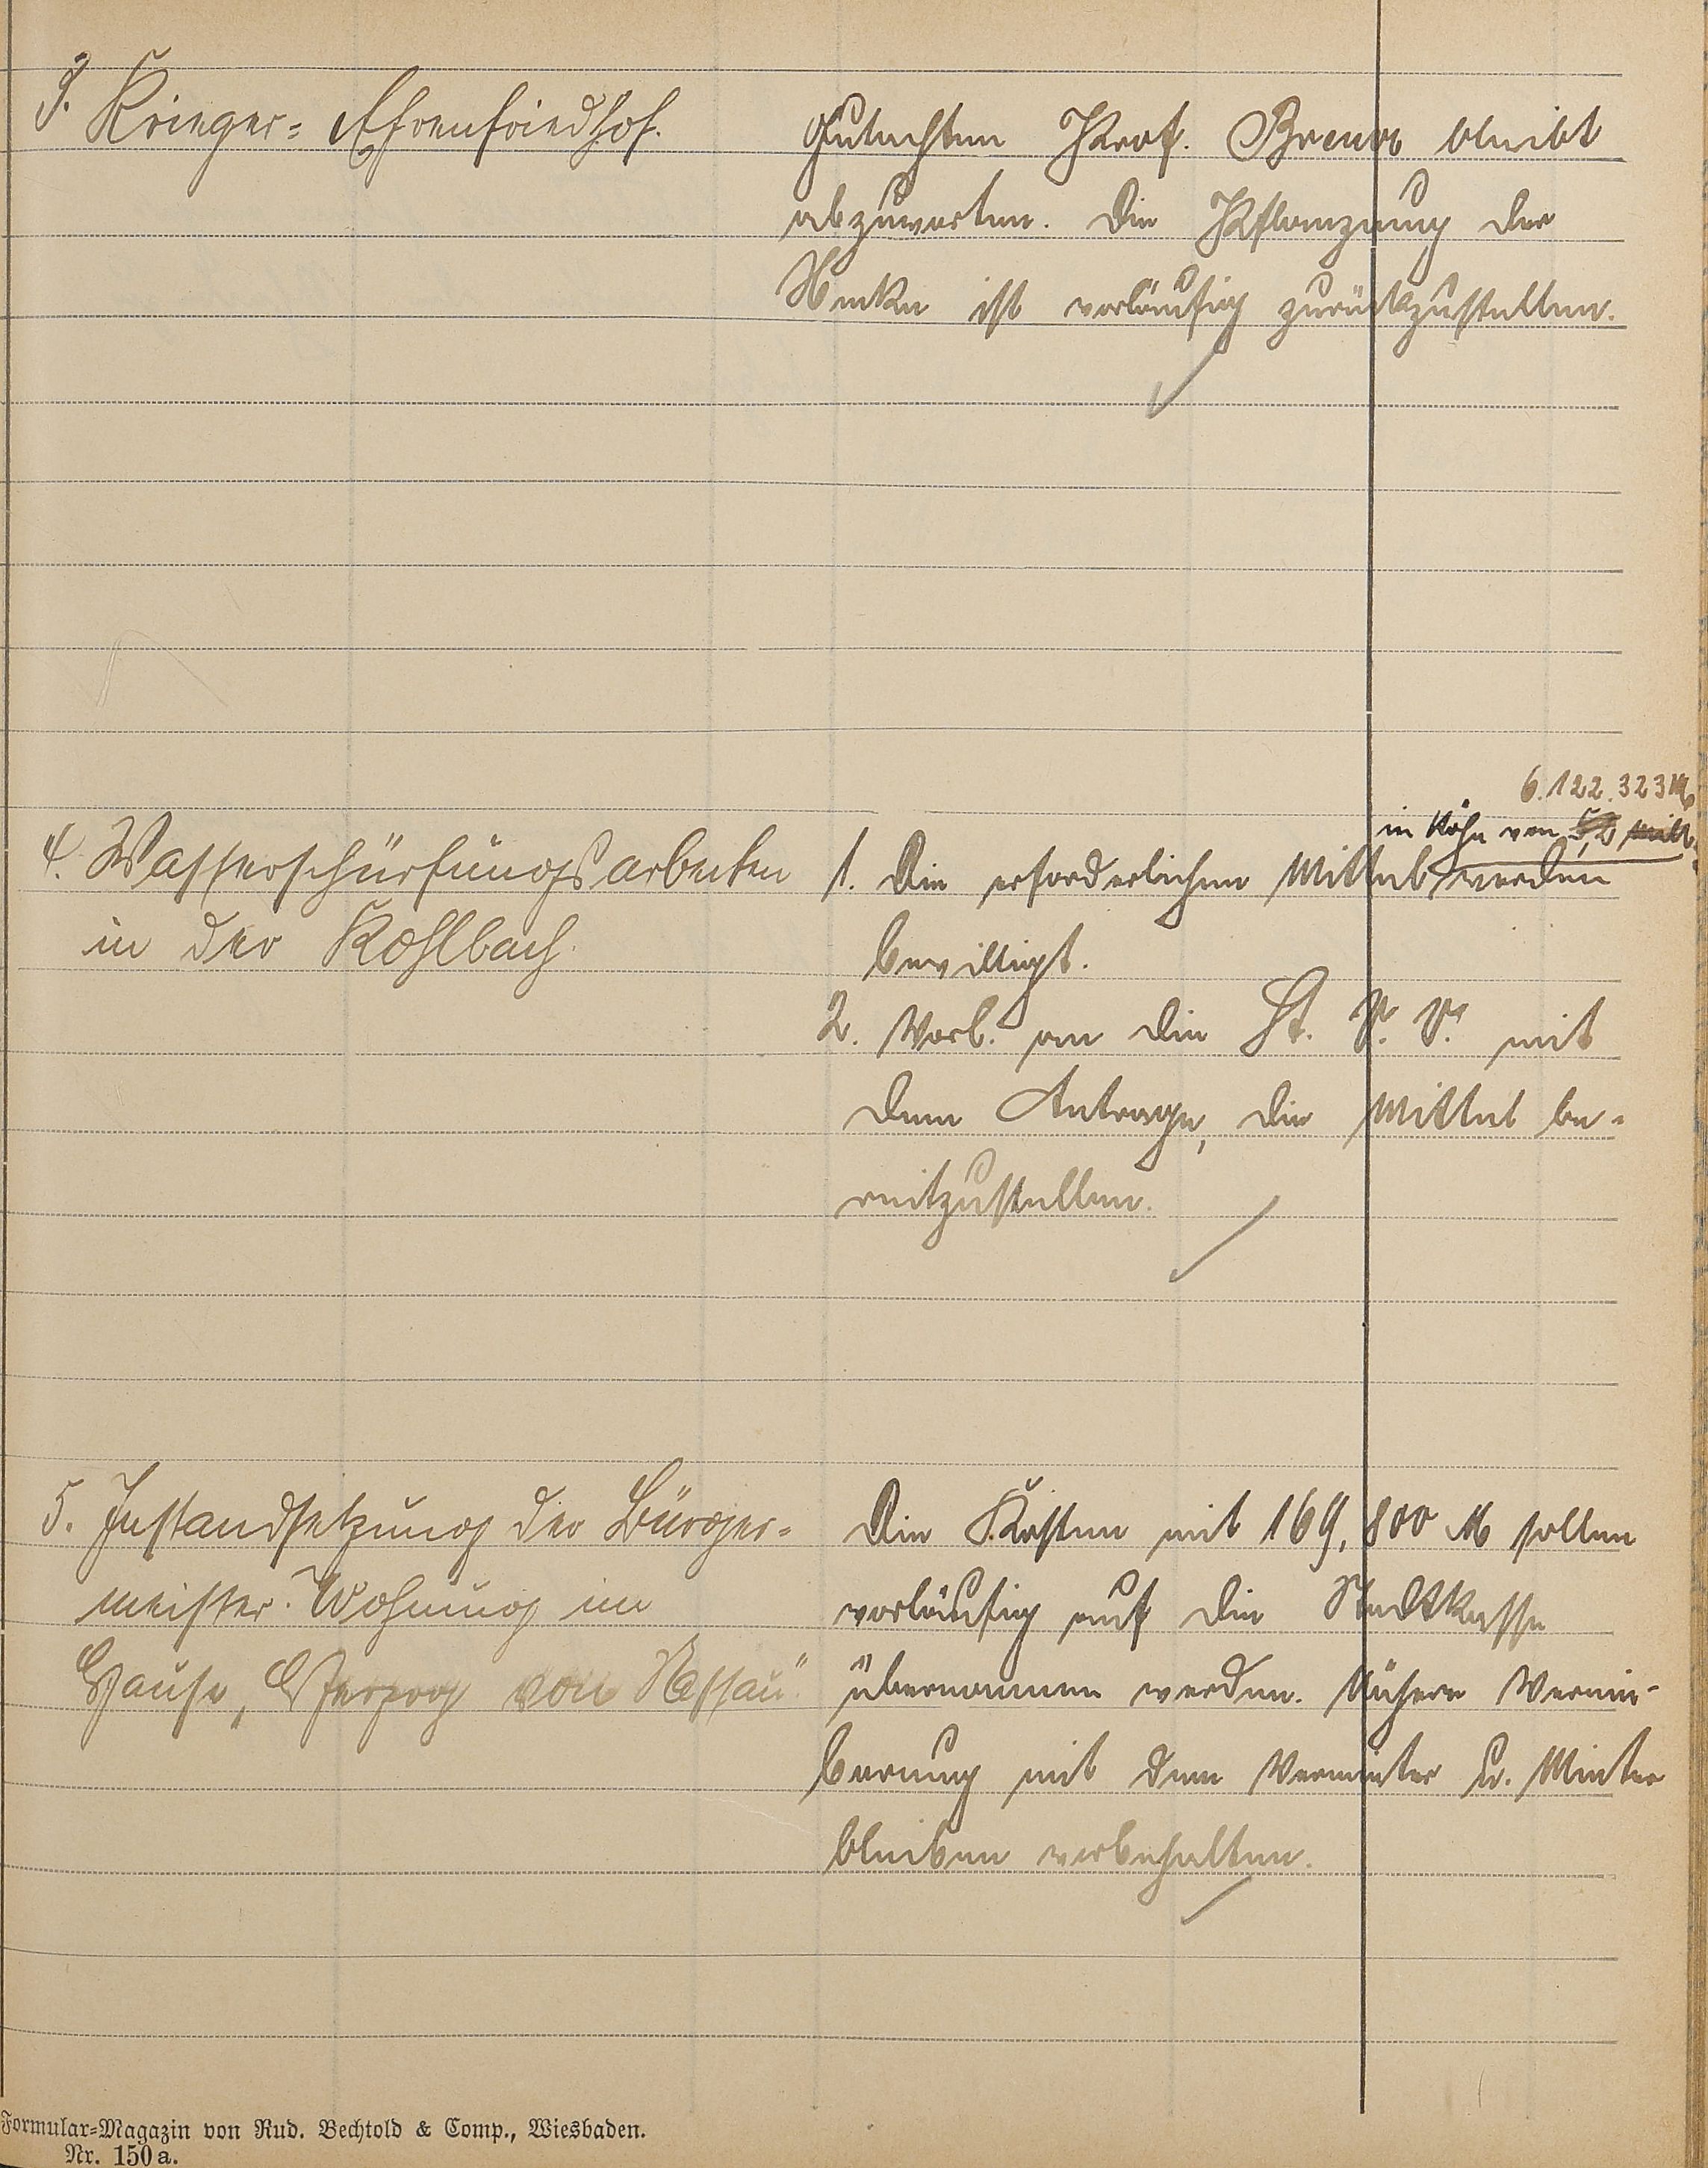 3. Krieger-Ehrenfriedhof.
Gutachten Prof. Brewo bleibt
abzuwarten. Die Pflanzung der
Hecke ist vorläufig zurückzustellen.
4. Wasserschürfungsarbeiten
in der Kohlbach.
6.122.323 M
in Höhe von
1. Die erforderlichen Mittel werden
bewilligt.
2. Vorl. an die St. V. V. mit
dem Antrage, die Mittel be-
reitzustellen.
5. Instandsetzung der Bürger-
meister-Wohnung im
Hause „Herzog von Nassau"
Die Kosten mit 169,800 M sollen
vorläufig auf die Stadtkasse
übernommen werden. Nähere Verein-
barung mit dem Vermieter u. Mieter
bleiben vorbehalten.
Formular-Magazin von Rud. Bechtold & Comp., Wiesbaden.
Nr. 150a.